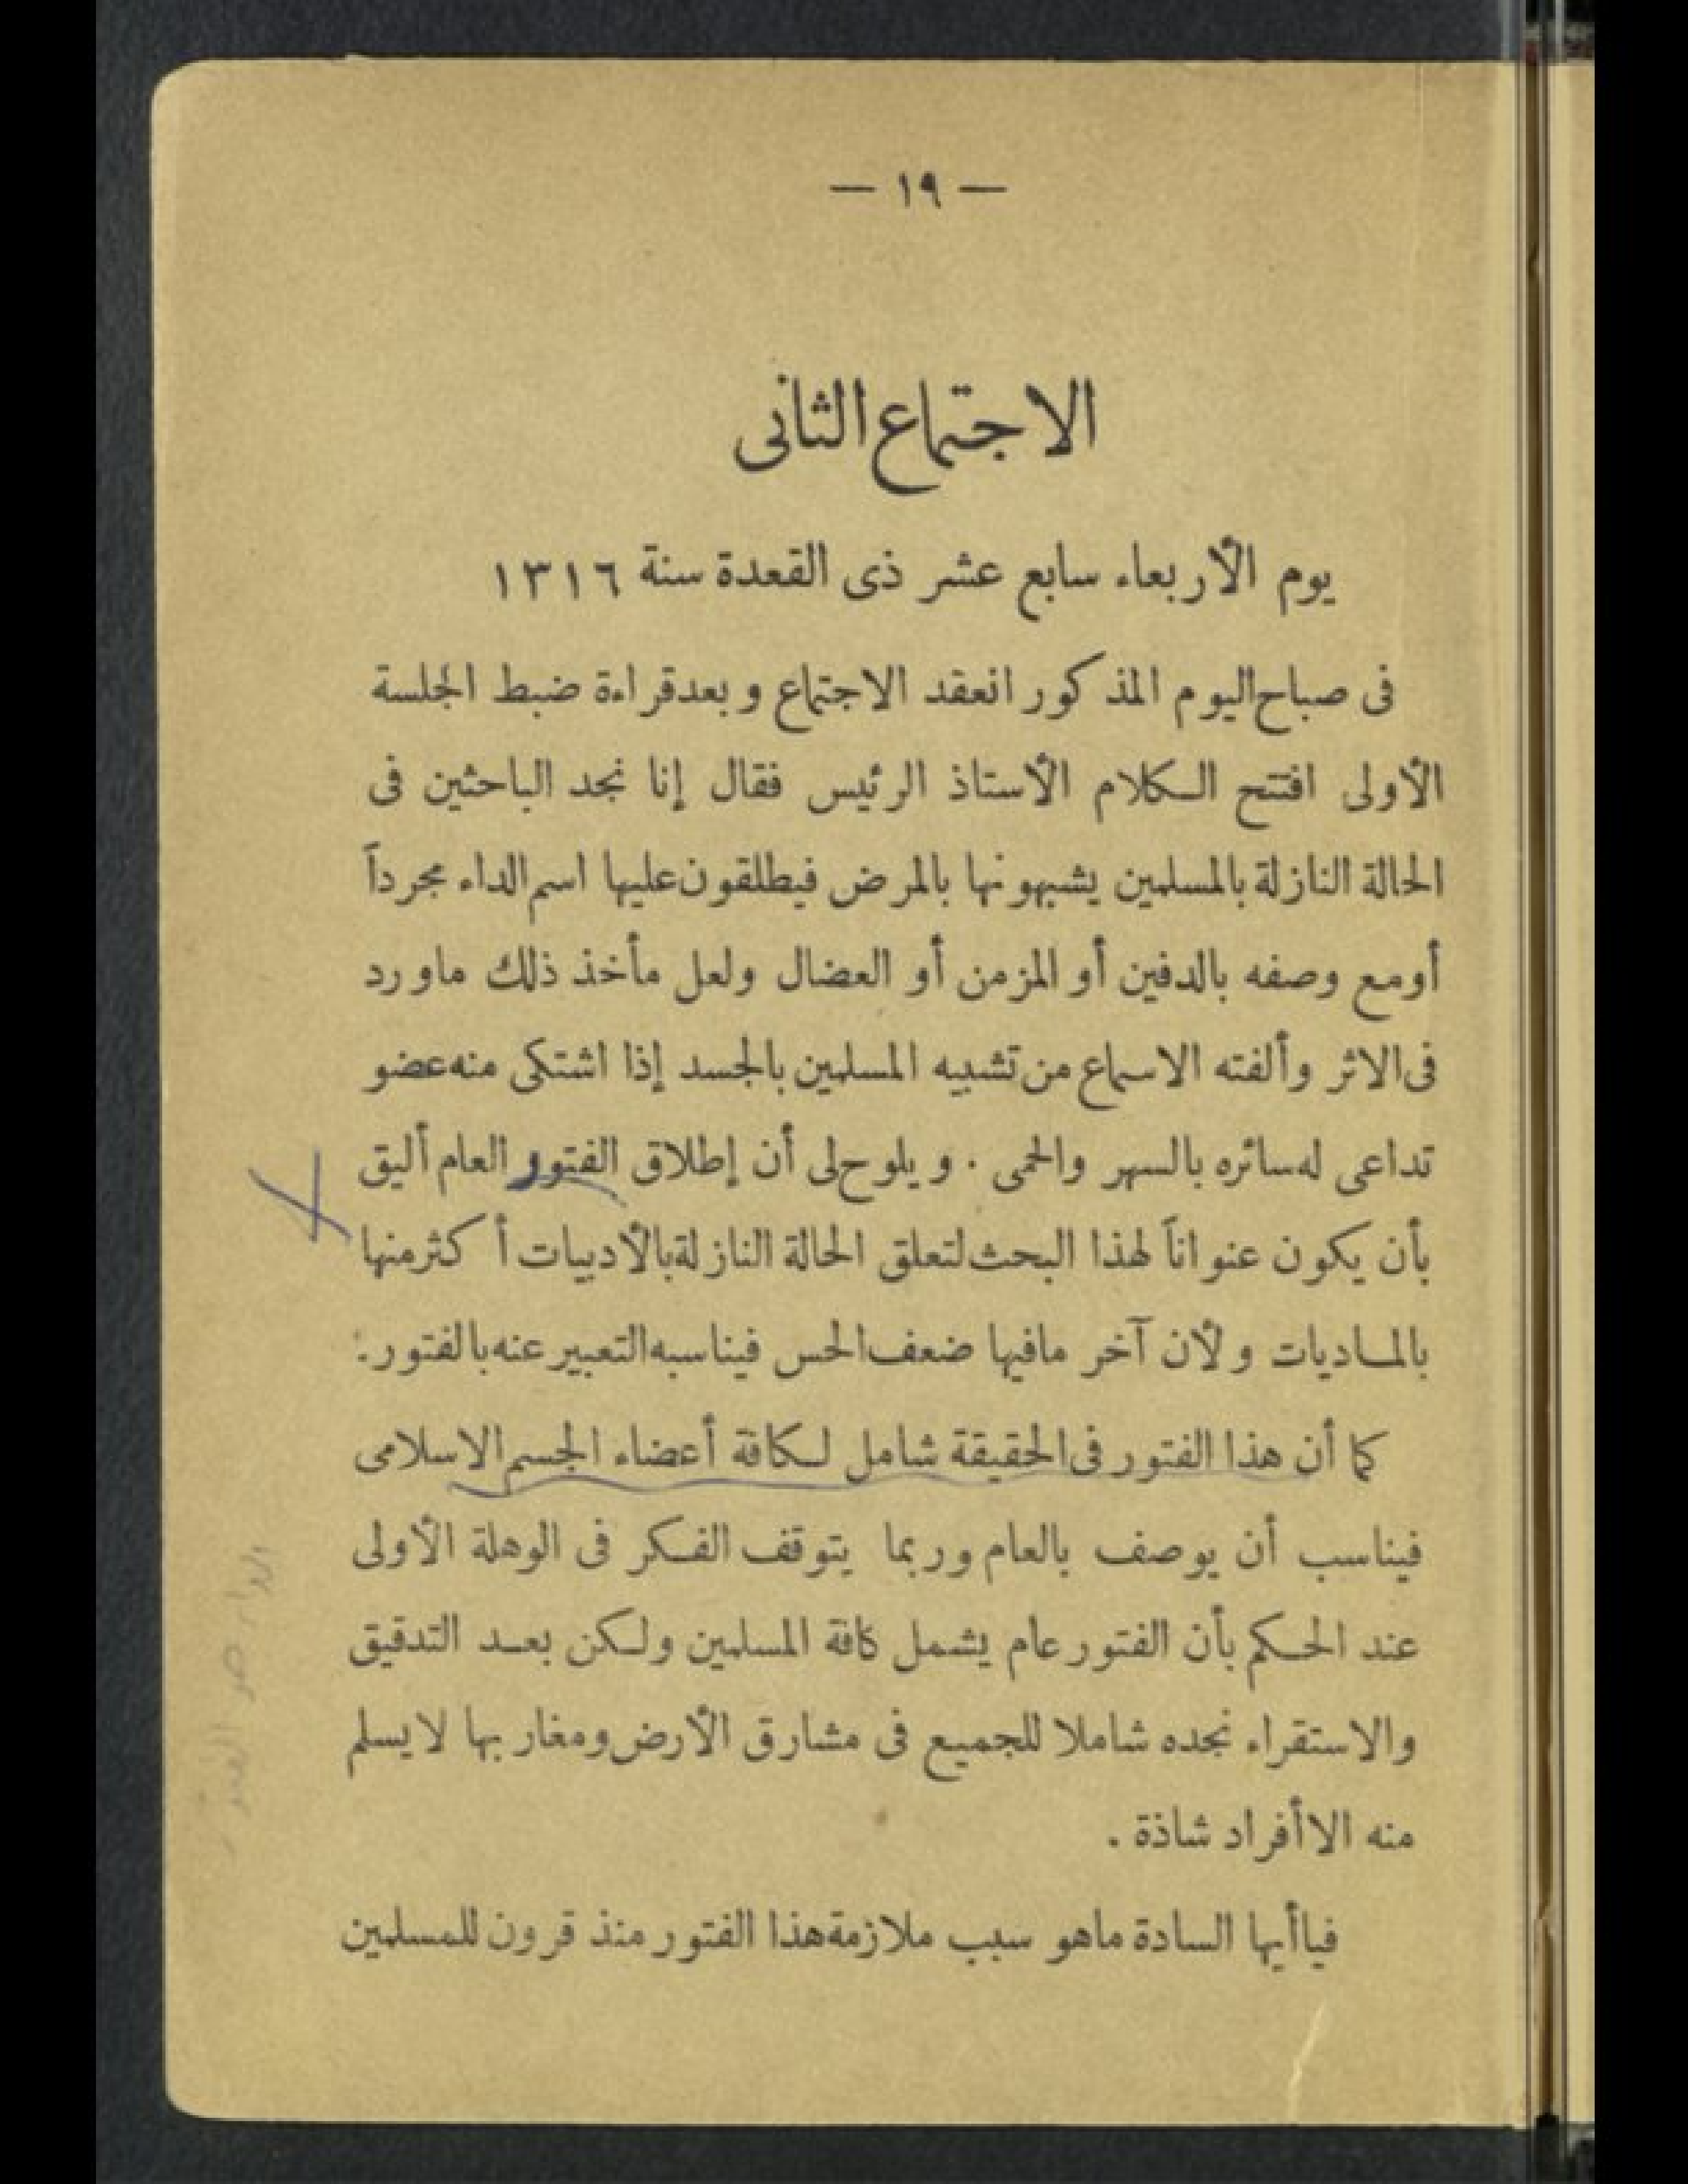 — ١٩ —
الاجتماع الثانى
يوم الأربعاء سابع عشر ذى القعدة سنة ١٣١٦
فى صباح اليوم المذكور انعقد الاجتماع وبعد قراءة ضبط الجلسة
الأولى افتتح الكلام الأستاذ الرئيس فقال إنا نجد الباحثين فى
الحالة النازلة بالمسلمين يشبهونها بالمرض فيطلقون عليها اسم الداء مجرداً
أو مع وصفه بالدفين أو المزمن أو العضال ولعل مأخذ ذلك ماورد
فى الاثر وألفته الاسماع من تشبيه المسلمين بالجسد إذا اشتكى منه عضو
تداعى له سائره بالسهر والحمى . ويلوح لى أن إطلاق الفتور العام أليق
بأن يكون عنواناً لهذا البحث لتعلق الحالة النازلة بالأدبيات أكثر منها
بالماديات ولأن آخر مافيها ضعف الحس فيناسبه التعبير عنه بالفتور :
كما أن هذا الفتور فى الحقيقة شامل لكافة أعضاء الجسم الاسلامى
فيناسب أن يوصف بالعام وربما يتوقف الفكر فى الوهلة الأولى
عند الحكم بأن الفتور عام يشمل كافة المسلمين ولكن بعد التدقيق
والاستقراء نجده شاملا للجميع فى مشارق الأرض ومغاربها لا يسلم
منه الا أفراد شاذة .
فياأيها السادة ماهو سبب ملازمة هذا الفتور منذ قرون للمسلمين